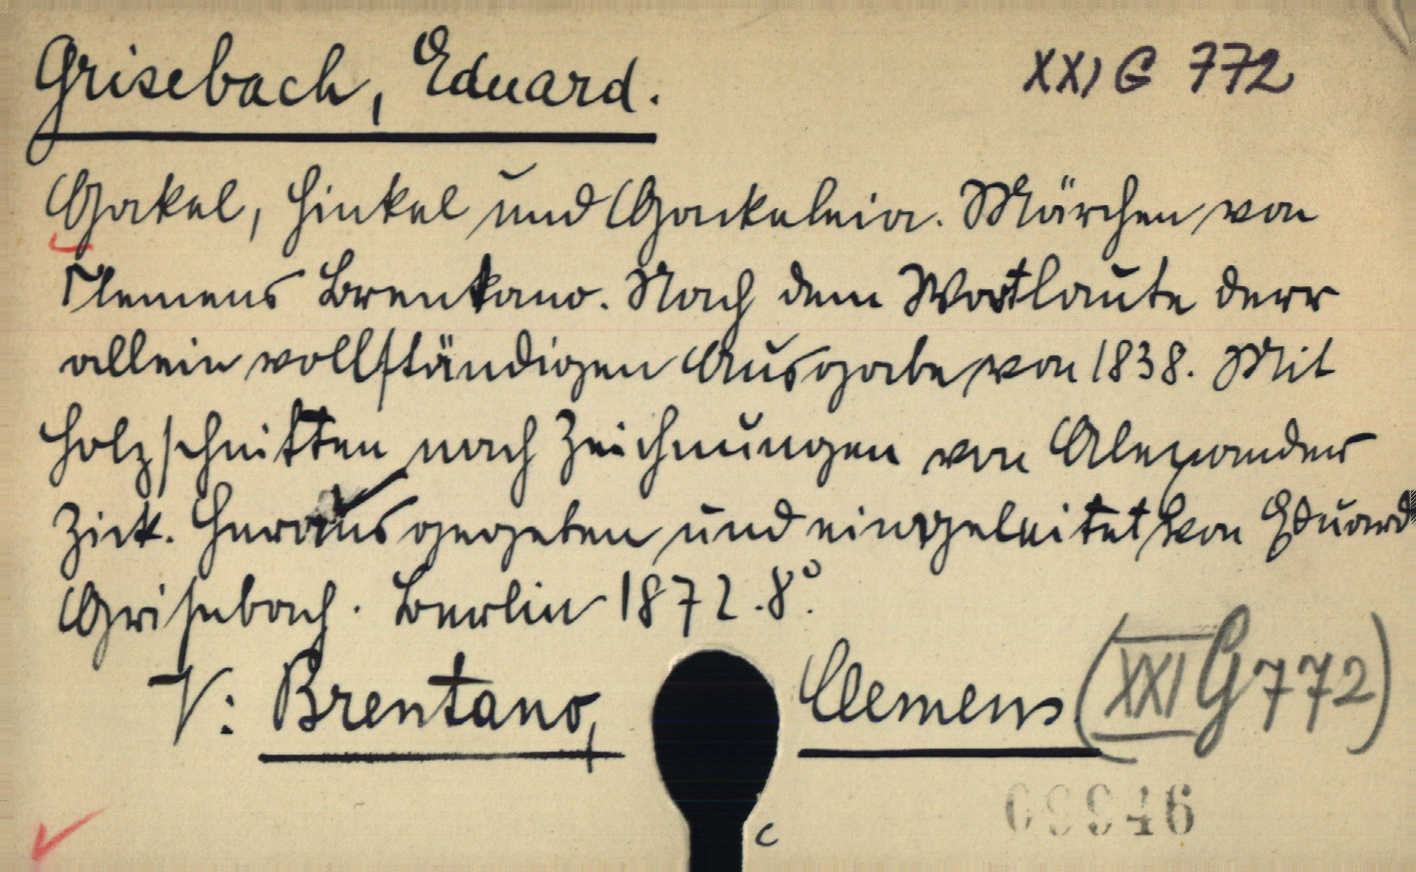 Grisebach, Eduard.
XXI G 772
Gakel, Hinkel und Gackeleia. Märchen von
Clemens Brentano. Nach dem Wortlaute der
allein vollständigen Ausgabe von 1838. Mit
Holzschnitten nach Zeichnungen von Alexander
Zick. Herausgegeben und eingeleitet von Eduard
Grisebach. Berlin 1872. 8°.
V: Brentano, Clemens (XXI G 772)
C